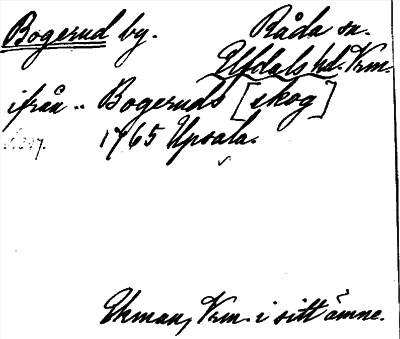 Bogerud by. Råda sn.
Elfdals hd. Vrm.
ifrån .. Bogeruds [skog]
1765 Upsala.
Ekman, Vrm. i sitt ämne.